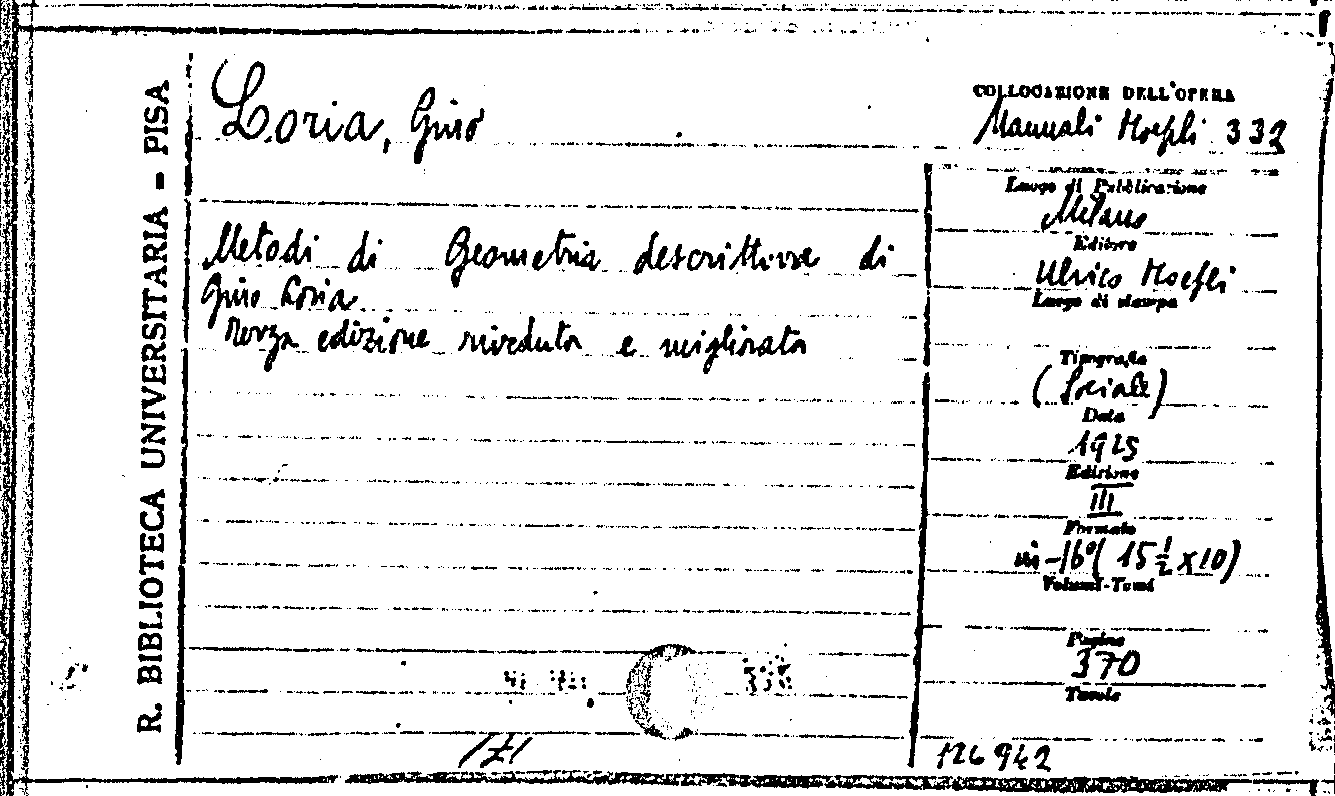 R. BIBLIOTECA UNIVERSITARIA - PISA
Loria, Gino
Metodi di Geometria descrittiva di
Gino Loria.
Terza edizione riveduta e migliorata
COLLOCAZIONE DELL'OPERA
Manuali Hoepli 332
Luogo di Pubblicazione
Milano
Editore
Ulrico Hoepli
Luogo di stampa
Tipografia
(Sociale)
Data
1925
Edizione
III
Formato
in-16º (15 ½ x 10)
Volumi-Tomi
Pagine
370
Tavole
126942